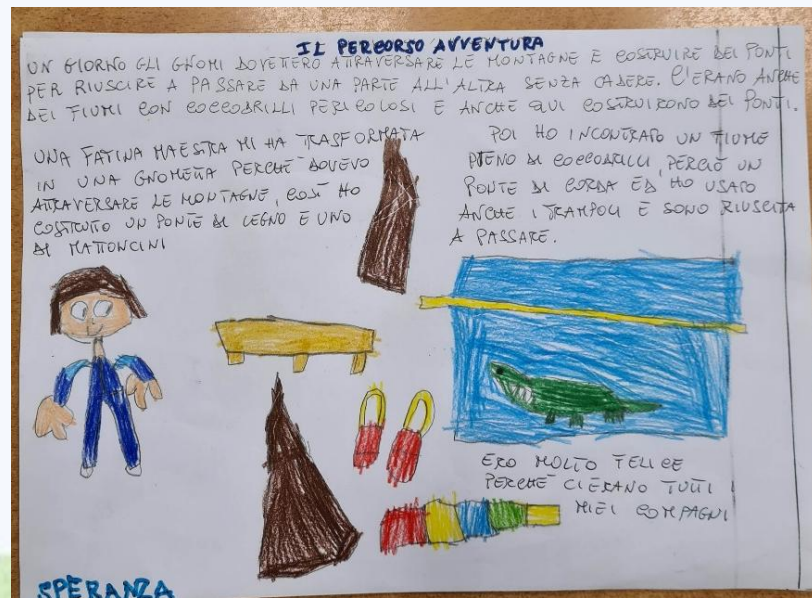 IL PERCORSO AVVENTURA
UN GIORNO GLI GNOMI DOVETERO ATTRAVERSARE LE MONTAGNE E COSTRUIRE DEI PONTI
PER RIUSCIRE A PASSARE DA UNA PARTE ALL'ALTRA SENZA CADERE. C'ERANO ANCHE
DEI FIUMI CON COCCODRILLI PERICOLOSI E ANCHE QUI COSTRUIRONO DEI PONTI.
UNA FATINA MAESTRA MI HA TRASFORMATA
IN UNA GNOMETTA PERCHÈ DOVEVO
ATTRAVERSARE LE MONTAGNE, COSÌ HO
COSTRUITO UN PONTE DI LEGNO E UNO
DI MATTONCINI
POI HO INCONTRATO UN FIUME
PIENO DI COCCODRILLI, PERCIÒ UN
PONTE DI CORDA ED HO USATO
ANCHE I TRAMPOLI E SONO RIUSCITA
A PASSARE.
ERO MOLTO FELICE
PERCHÈ C'ERANO TUTTI I
MIEI COMPAGNI
SPERANZA